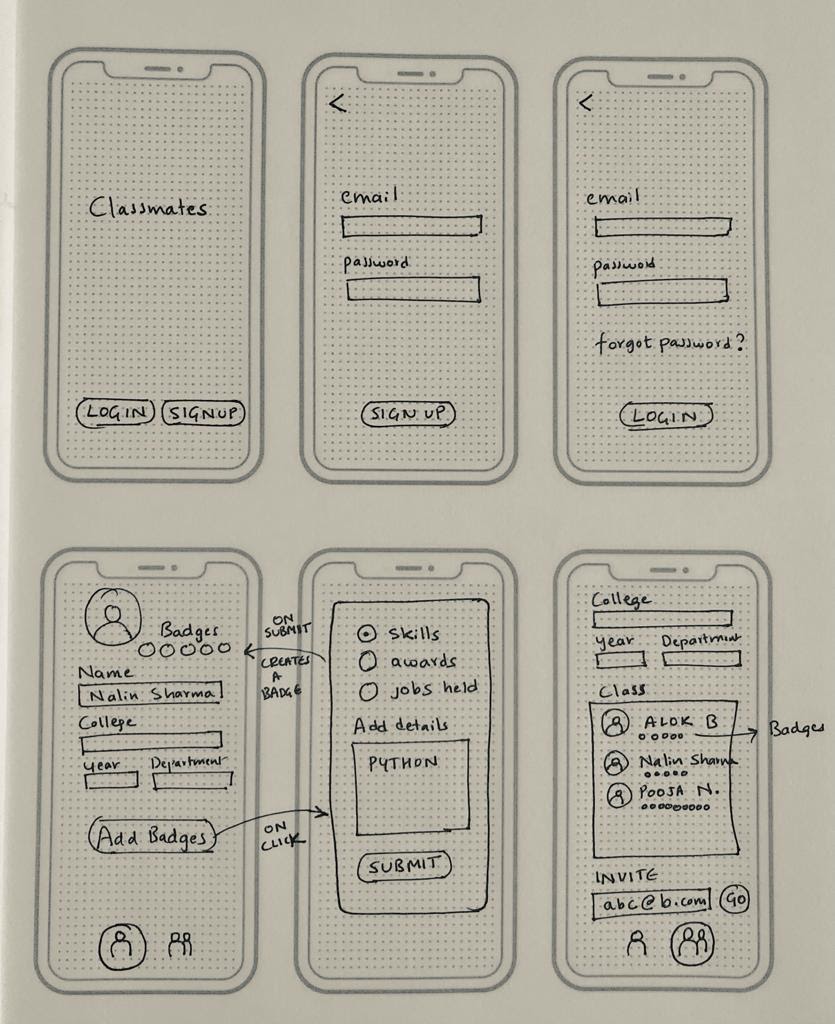 Classmates
LOGIN SIGNUP
<
email
password
SIGN UP
<
email
password
forgot password?
LOGIN
Badges
Name
Nalin Sharma
College
year Department
Add Badges
ON
SUBMIT
CREATES
A
BADGE
ON
CLICK
skills
awards
jobs held
Add details
PYTHON
SUBMIT
College
year Department
Class
ALOK B
Badges
Nalin Sharma
POOJA N.
INVITE
abc@b.com GO